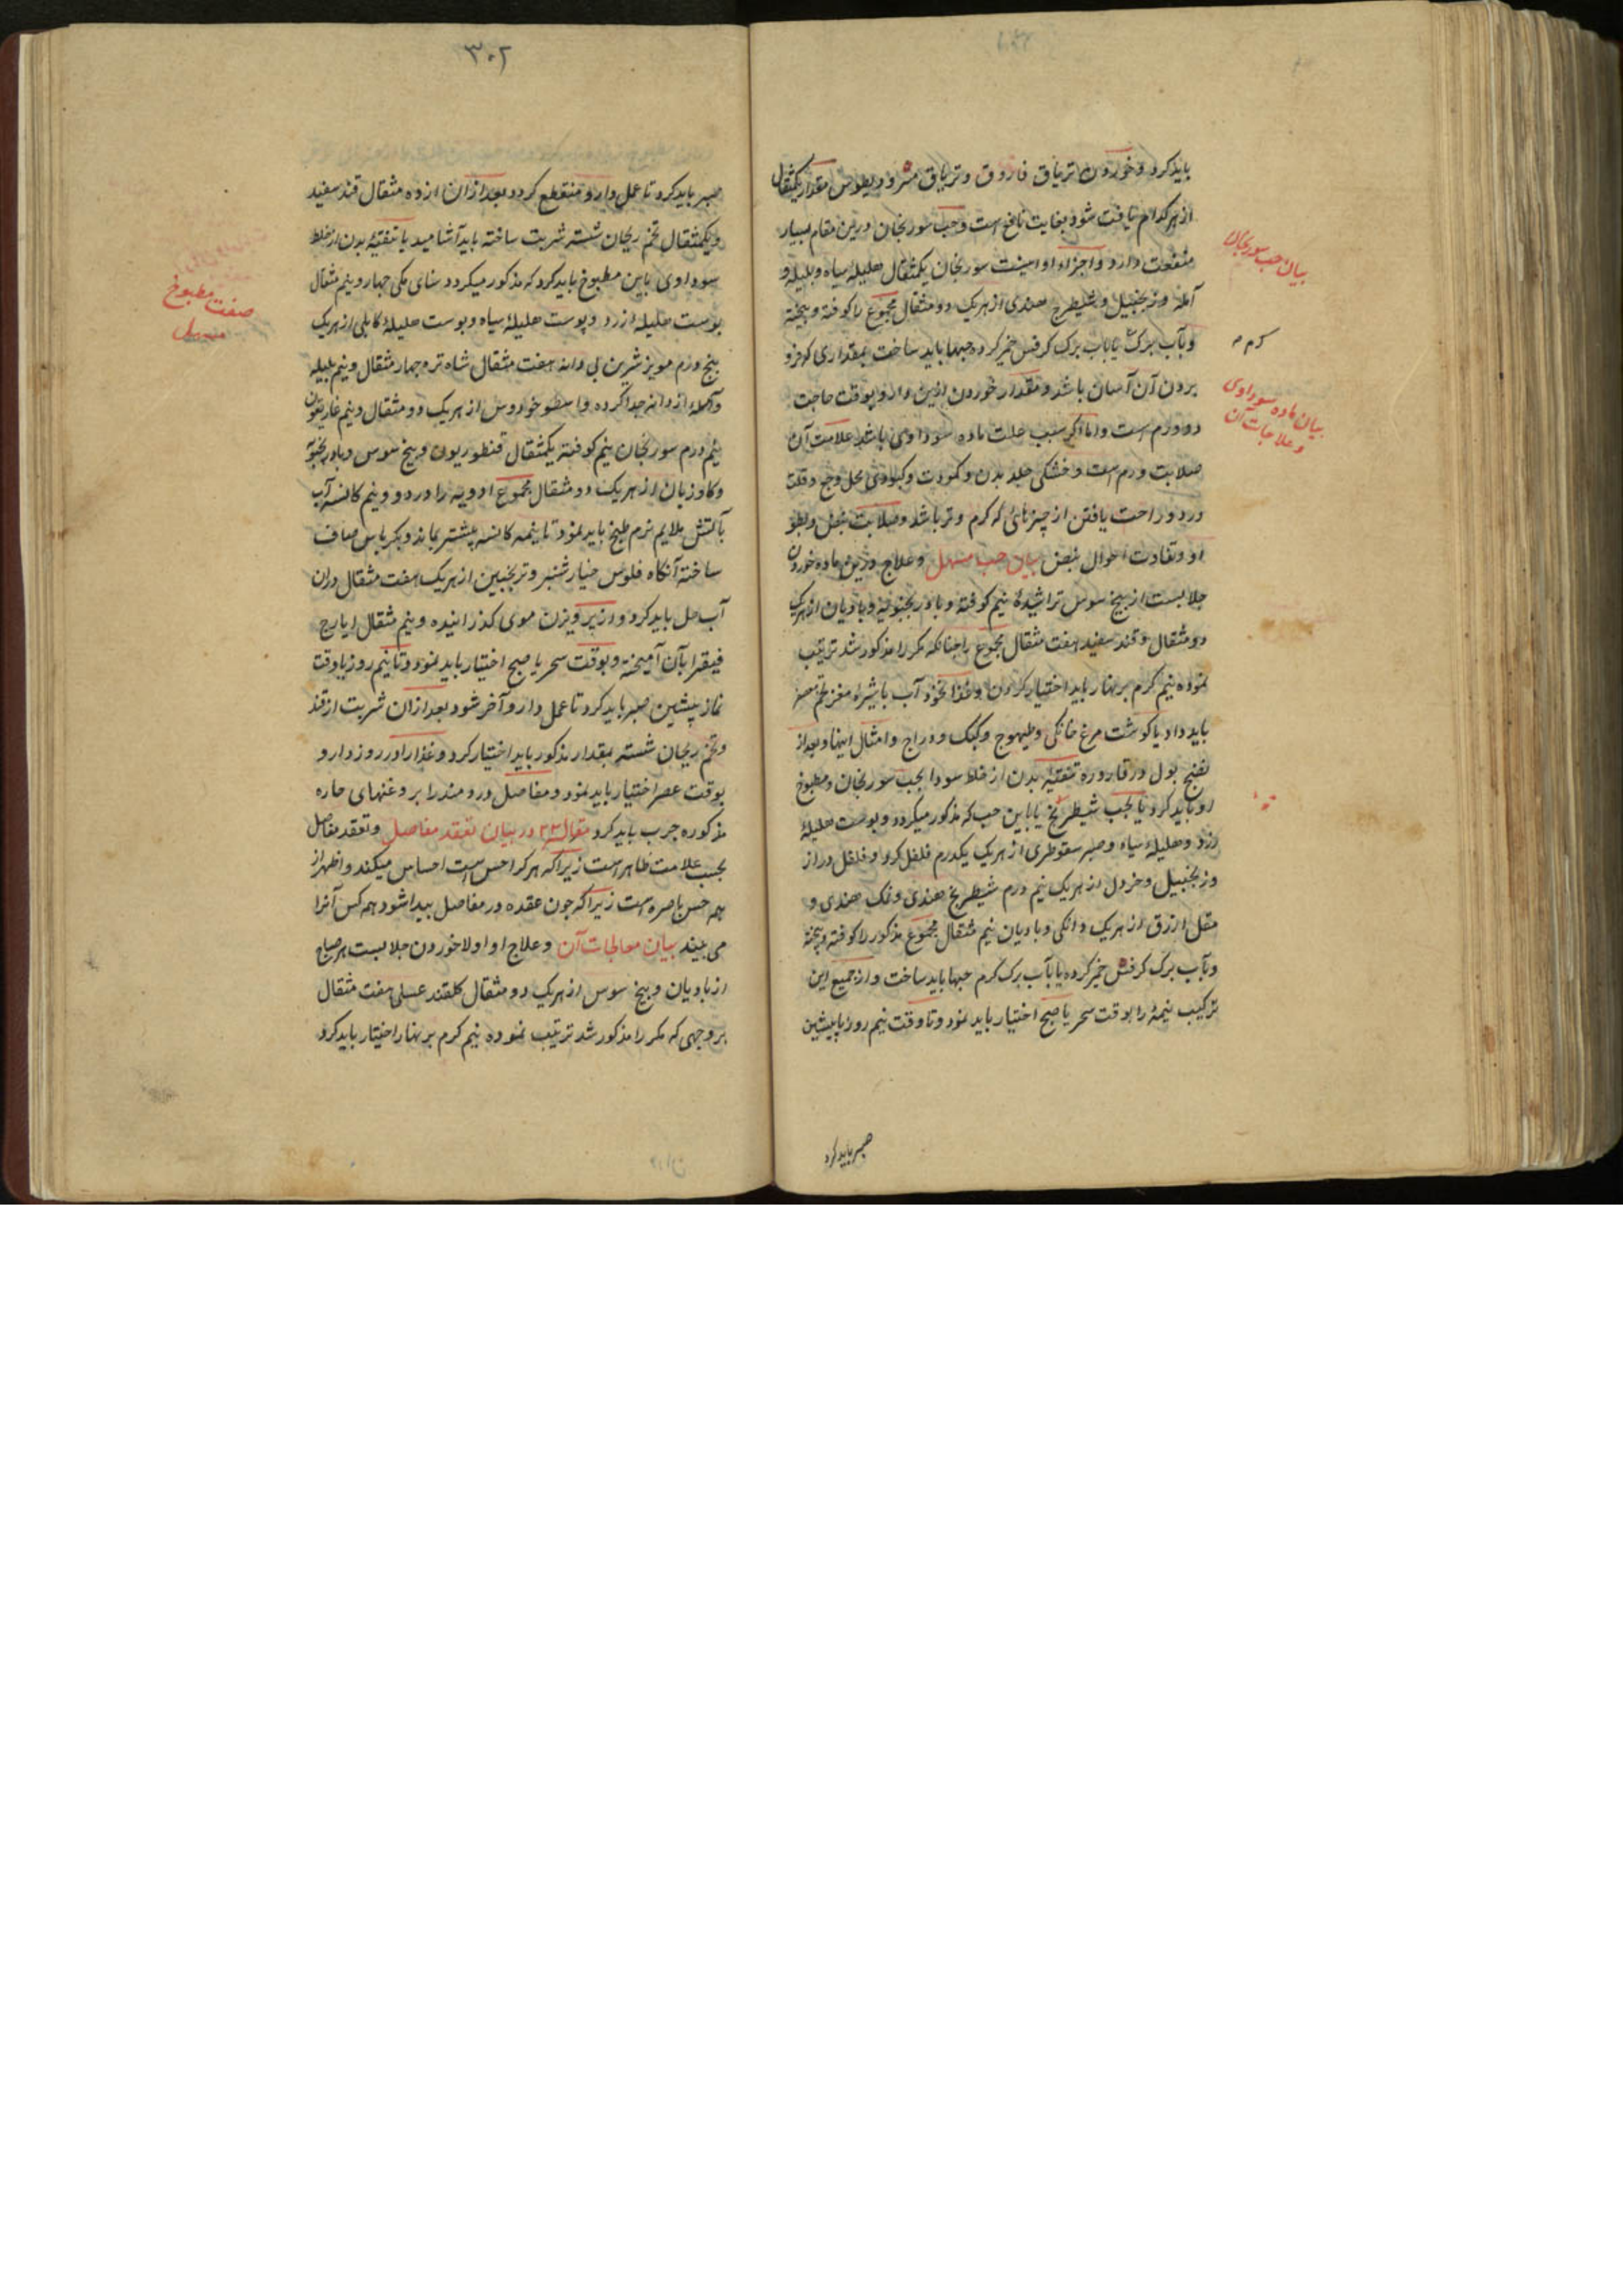 باید کرد و خوردن تریاق فاروق و تریاق مثرودیطوس مقدار یکمثقال
از هر کدام یافت شود بغایت نافع است و حب سورنجان درین مقام بسیار
منفعت دارد و اجزاء او اینست سورنجان یکمثقال هلیلۀ سیاه و بلیله و
آمله و زنجبیل و شیطرج هندی از هر یک دو مثقال مجموع را کوفته و بیخته
و بآب برگ یا بآب برک کرفس خمیر کرده حبها باید ساخت بمقداری که فرو
بردن آن آسان باشد و مقدار خوردن ازین دارو بوقت حاجت
دو درم است و اما اکر سبب علت ماده سوداوی باشد علامت آن
صلابت ورم است و خشکی جلد بدن و کمودت و کبودی محل وجع و قلت
درد و راحت یافتن از چیزهائی که کرم و تر باشد و صلابت نبض و بطو
او و تفاوت احوال نبض بیان حب مسهل و علاج درین ماده خوردن
جلابست از بیخ سوس تراشیدۀ نیم کوفته و بادرنجبویه و بادیان از هر یک
دو مثقال و قند سفید هفت مثقال مجموع را چنانکه مکررا مذکور شد ترتیب
نموده نیم کرم بر نهار باید اختیار کردن و غذا نخود آب با شیرۀ مغز تخم معصفر
باید داد با کوشت مرغ خانکی و طیهوج و کبک و دراج و امثال اینها و بعد از
نضج بول در قاروره تنقیه بدن از خلط سودا بحب سورنجان و مطبوخ
او باید کرد یا بحب شیطرج یا باین حب که مذکور میکردد و پوست هلیلۀ
زرد و هلیلۀ سیاه و صبر سقوطری از هر یک یکدرم فلفل کرد و فلفل دراز
و زنجبیل و خردل از هر یک نیم درم شیطرج هندی و نمک هندی و
مقل ازرق از هر یک دانکی و بادیان نیم مثقال مجموع مذکور را کوفته و بیخته
و بآب برک کرفس خمیر کرده یا بآب برک کرم حبها باید ساخت و از جمیع این
ترکیب نیمۀ را بوقت سحر یا صبح اختیار باید نمود و تا وقت نیم روز یا پیشین
صبر باید کرد
بیان حب سورنجان
کرم
بیان ماده سوداوی
و علاجات آن
۳۰۲
صبر باید کرد تا عمل دارو منقطع کردد بعد از آن از ده مثقال قند سفید
و یکمثقال تخم ریحان شسته شربت ساخته باید آشامید یا تنقیۀ بدن از خلط
سوداوی باین مطبوخ باید کرد که مذکور میکردد سنای مکی چهار و نیم مثقال
پوست هلیله زرد و پوست هلیلۀ سیاه و پوست هلیلۀ کابلی از هر یک
پنج درم مویز شیرین بی دانه هفت مثقال شاه تره چهار مثقال و نیم بلیله
و آملۀ از دانه جدا کرده و اسطوخودوس از هر یک دو مثقال و نیم غاریقون
نیم درم سورنجان نیم کوفته یکمثقال قنطوریون و بیخ سوس و بادرنجبویه
و کاوزبان از هر یک دو مثقال مجموع ادویه را در دو و نیم کاسه آب
بآتش ملایم نرم طبخ باید نمود تا نیمه کاسه بیشتر بماند و بکرباس صاف
ساخته آنکاه فلوس خیار شنبر و ترنجبین از هر یک هفت مثقال دران
آب حل باید کرد و از پرویزن موی کذرانیده و نیم مثقال ایارج
فیقرا بآن آمیخته و بوقت سحر یا صبح اختیار باید نمود و تا نیم روز یا وقت
نماز پیشین صبر باید کرد تا عمل دارو آخر شود بعد از آن شربت از قند
و تخم ریحان شسته بمقدار مذکور باید اختیار کرد و غذا را در روز دارو
بوقت عصر اختیار باید نمود و مفاصل دردمند را بروغنهای حاره
مذکوره چرب باید کرد مقاله ۲۳ در بیان تعقد مفاصل و تعقد مفاصل
بحسب علامت ظاهر است زیرا که هر کرا حس است احساس میکند و اظهر از
همه حس باصره است زیرا که چون عقده در مفاصل پیدا شود همه کس آنرا
می بیند بیان معالجات آن و علاج او اولا خوردن جلابست هر صباح
از بادیان و بیخ سوس از هر یک دو مثقال کلقند عسلی هفت مثقال
بر وجهی که مکررا مذکور شد ترتیب نموده نیم کرم بر نهار اختیار باید کرد
صفت مطبوخ
مسهل